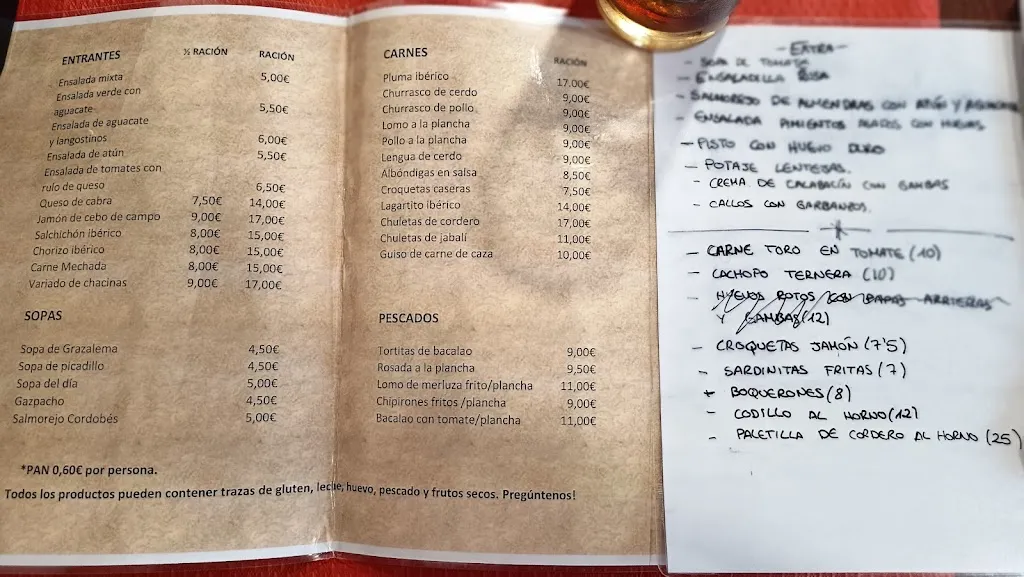 ENTRANTES ½ RACIÓN RACIÓN
Ensalada mixta 5,00€
Ensalada verde con
aguacate 5,50€
Ensalada de aguacate
y langostinos 6,00€
Ensalada de atún 5,50€
Ensalada de tomates con
rulo de queso 6,50€
Queso de cabra 7,50€ 14,00€
Jamón de cebo de campo 9,00€ 17,00€
Salchichón ibérico 8,00€ 15,00€
Chorizo ibérico 8,00€ 15,00€
Carne Mechada 8,00€ 15,00€
Variado de chacinas 9,00€ 17,00€
SOPAS
Sopa de Grazalema 4,50€
Sopa de picadillo 4,50€
Sopa del día 5,00€
Gazpacho 4,50€
Salmorejo Cordobés 5,00€
*PAN 0,60€ por persona.
Todos los productos pueden contener trazas de gluten, leche, huevo, pescado y frutos secos. Pregúntenos!
CARNES RACIÓN
Pluma ibérico 17,00€
Churrasco de cerdo 9,00€
Churrasco de pollo 9,00€
Lomo a la plancha 9,00€
Pollo a la plancha 9,00€
Lengua de cerdo 9,00€
Albóndigas en salsa 8,50€
Croquetas caseras 7,50€
Lagartito ibérico 14,00€
Chuletas de cordero 17,00€
Chuletas de jabalí 11,00€
Guiso de carne de caza 10,00€
PESCADOS
Tortitas de bacalao 9,00€
Rosada a la plancha 9,50€
Lomo de merluza frito/plancha 11,00€
Chipirones fritos /plancha 9,00€
Bacalao con tomate/plancha 11,00€
- EXTRA -
- SOPA DE TOMATE
- ENSALADILLA RUSA
- SALMOREJO DE ALMENDRAS CON ATÚN Y AGUACATE
- ENSALADA PIMIENTOS ASADOS CON HUEVAS
- PISTO CON HUEVO DURO
- POTAJE LENTEJAS.
- CREMA DE CALABACÍN CON GAMBAS
- CALLOS CON GARBANZOS.
- CARNE TORO EN TOMATE (10)
- CACHOPO TERNERA (10)
- HUEVOS ROTOS CON PAPAS ARRIERAS
Y GAMBAS (12)
- CROQUETAS JAMÓN (7'5)
- SARDINITAS FRITAS (7)
+ BOQUERONES (8)
- CODILLO AL HORNO (12)
- PALETILLA DE CORDERO AL HORNO (25)